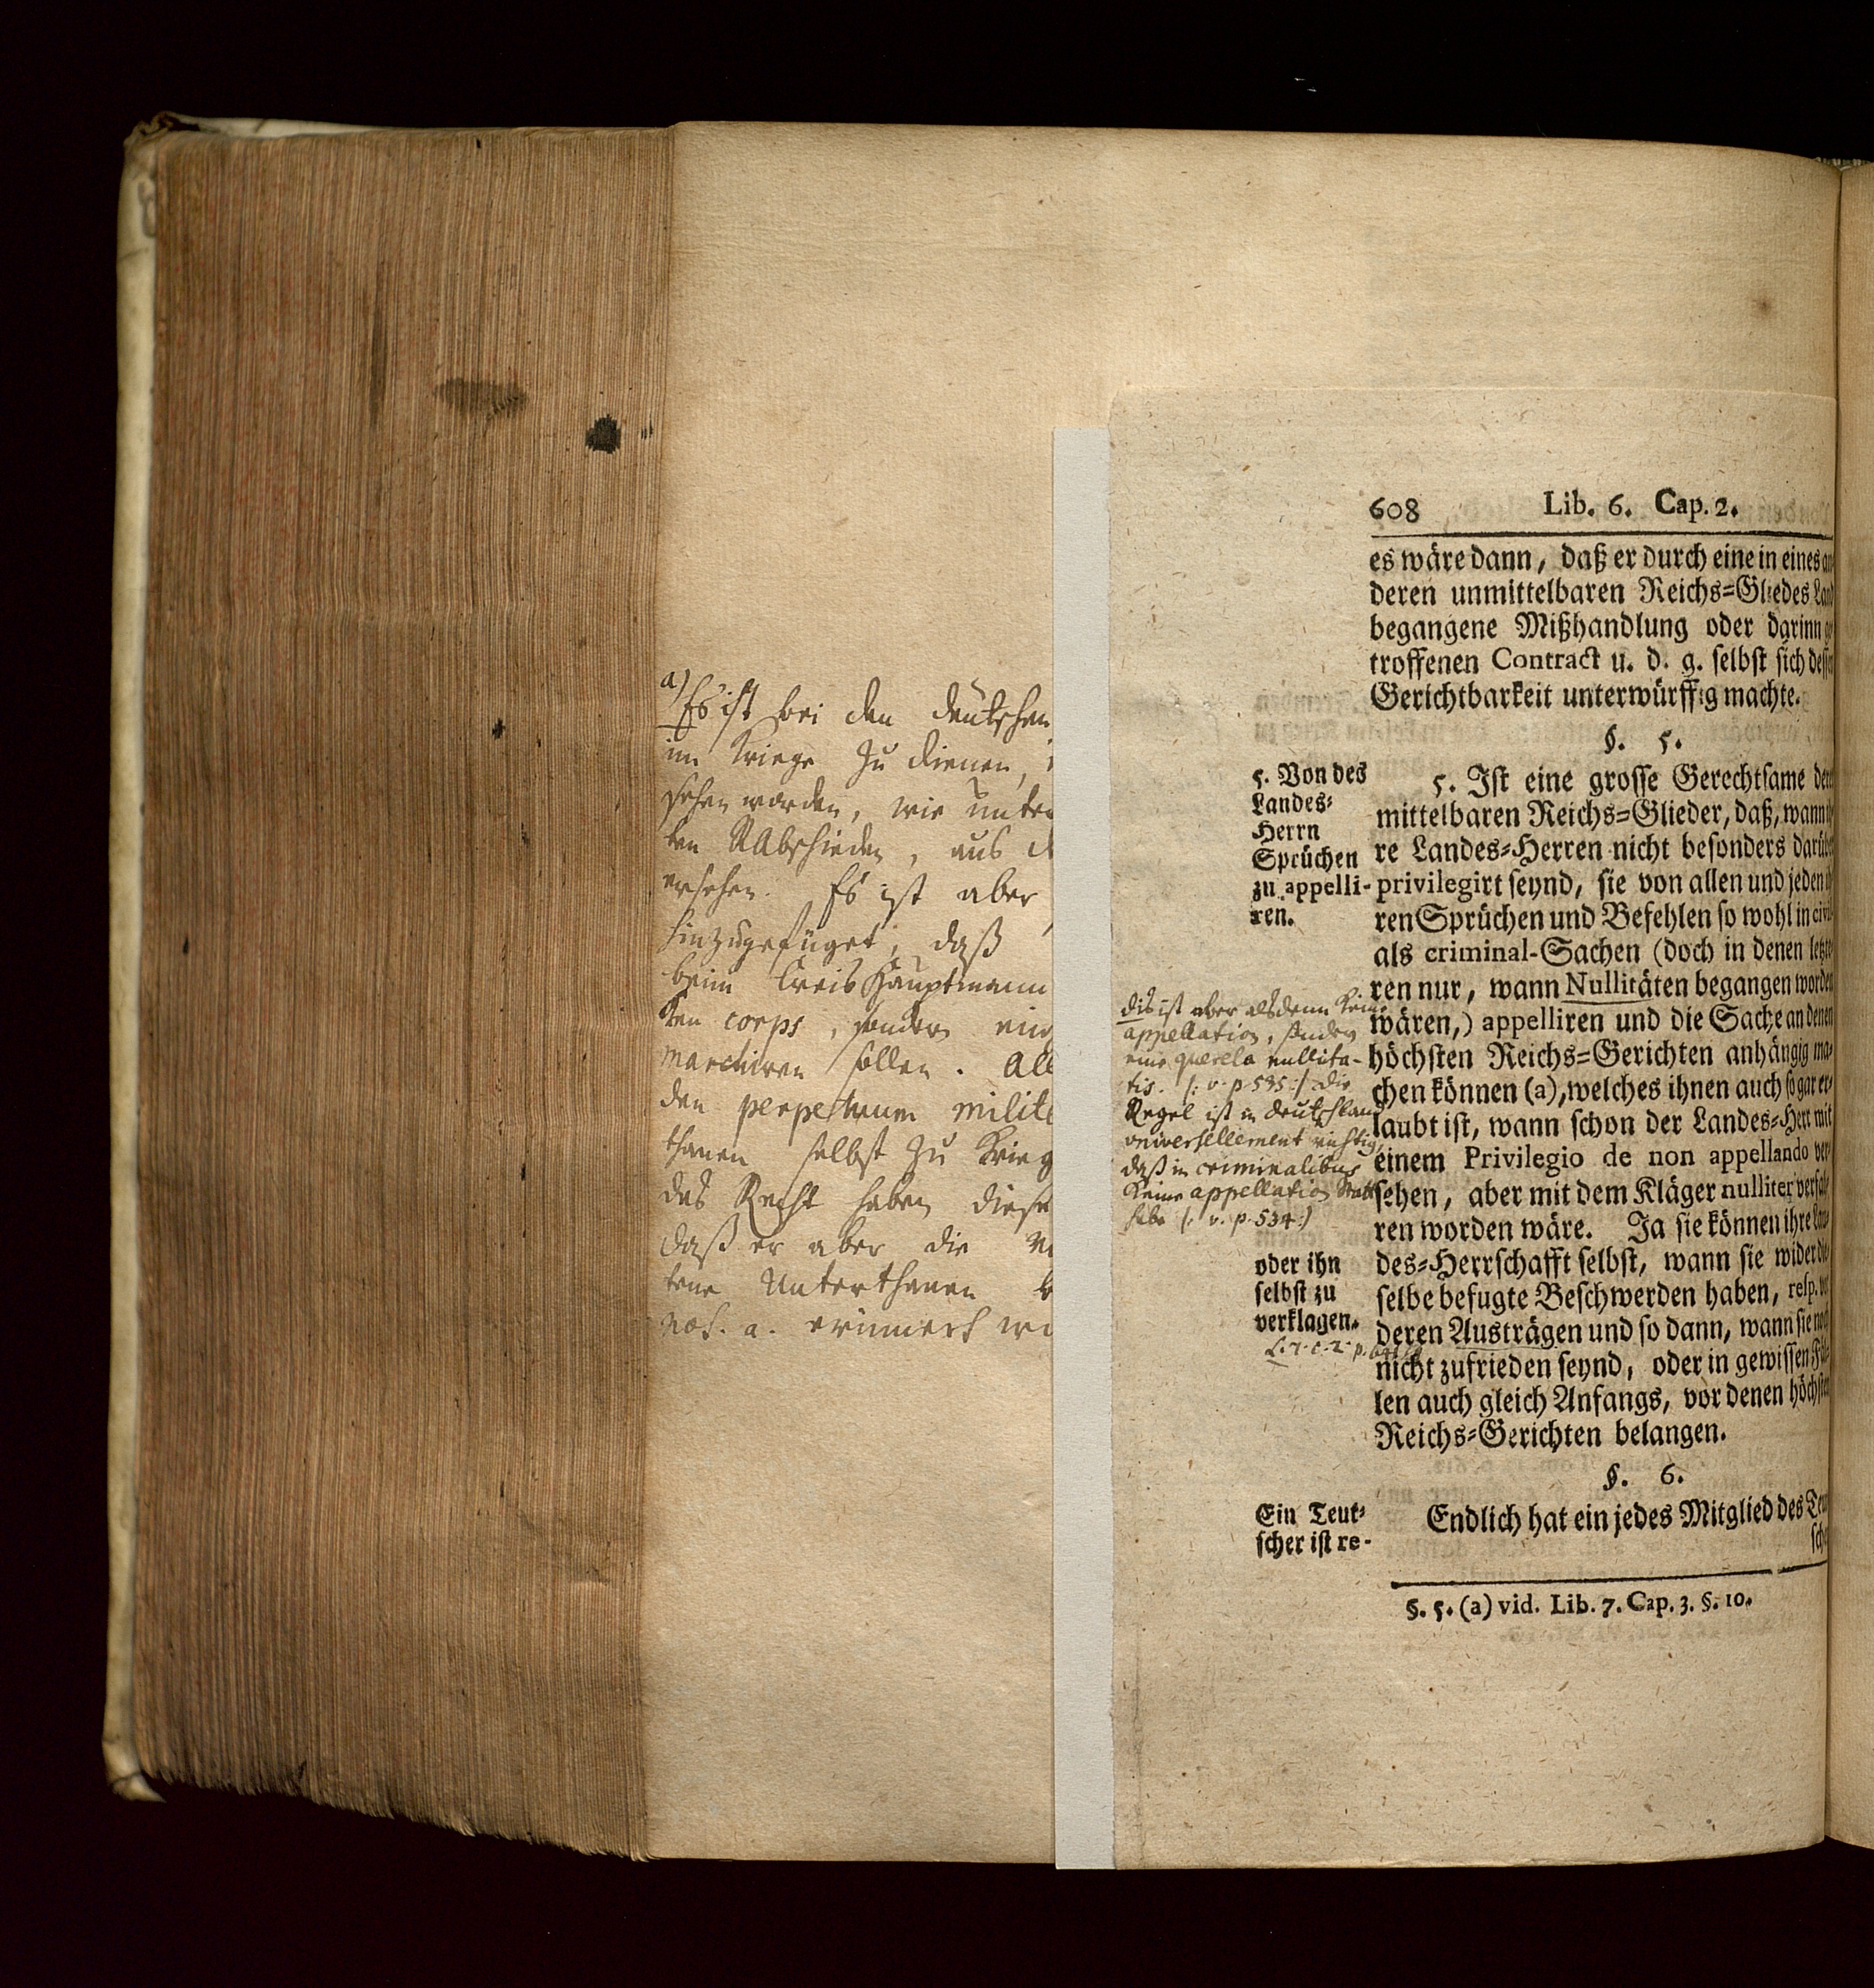 a) Es ist bei den deutschen
im Kriege zu dienen,
sehen worden, wie unter
ten RAbschieden, aus
ersehen. Es ist aber
hinzugefüget, daß
beim Creis Hauptmann
ten corps, sondern
marchiren sollen. All
den perpetuum milit
thanen selbst zu Krieg
das Recht haben diese
daß er aber die
tene Unterthanen
not. a. erinnert
608 Lib. 6. Cap. 2.
es wäre dann, daß er durch eine in eines an-
deren unmittelbaren Reichs=Gliedes Land
begangene Mißhandlung oder darinn ge-
troffenen Contract u. d. g. selbst sich dessen
Gerichtbarkeit unterwürffig machte.
§. 5.
5. Von des
Landes=
Herrn
Sprüchen
zu appelli-
ren.
5. Ist eine grosse Gerechtsame der
mittelbaren Reichs=Glieder, daß, wann ih-
re Landes=Herren nicht besonders darüber
privilegirt seynd, sie von allen und jeden ih-
ren Sprüchen und Befehlen so wohl in civil-
als criminal-Sachen (doch in denen letzte-
ren nur, wann Nullitäten begangen worden
wären,) appelliren und die Sache an denen
höchsten Reichs=Gerichten anhängig ma-
chen können (a), welches ihnen auch so gar er-
laubt ist, wann schon der Landes=Herr mit
einem Privilegio de non appellando ver-
sehen, aber mit dem Kläger nulliter verfah-
ren worden wäre. Ja sie können ihre Lan-
des=Herrschafft selbst, wann sie wider die-
selbe befugte Beschwerden haben, resp. vor
deren Austrägen und so dann, wann sie noch
nicht zufrieden seynd, oder in gewissen Fäl-
len auch gleich Anfangs, vor denen höchsten
Reichs=Gerichten belangen.
dis ist aber alsdenn Keine
appellation, sondern
eine querela nullita-
tis. (: v. p 535 :) Die
Regel ist in Deutschland
universellement richtig,
daß in criminalibus
Keine appellation Statt
habe (: v. p. 534 :)
oder ihn
selbst zu
verklagen.
L. 7. c. 2. p.
§. 6.
Ein Teut=
scher ist re-
Endlich hat ein jedes Mitglied des Teut-
sche
§. 5. (a) vid. Lib. 7. Cap. 3. §. 10.